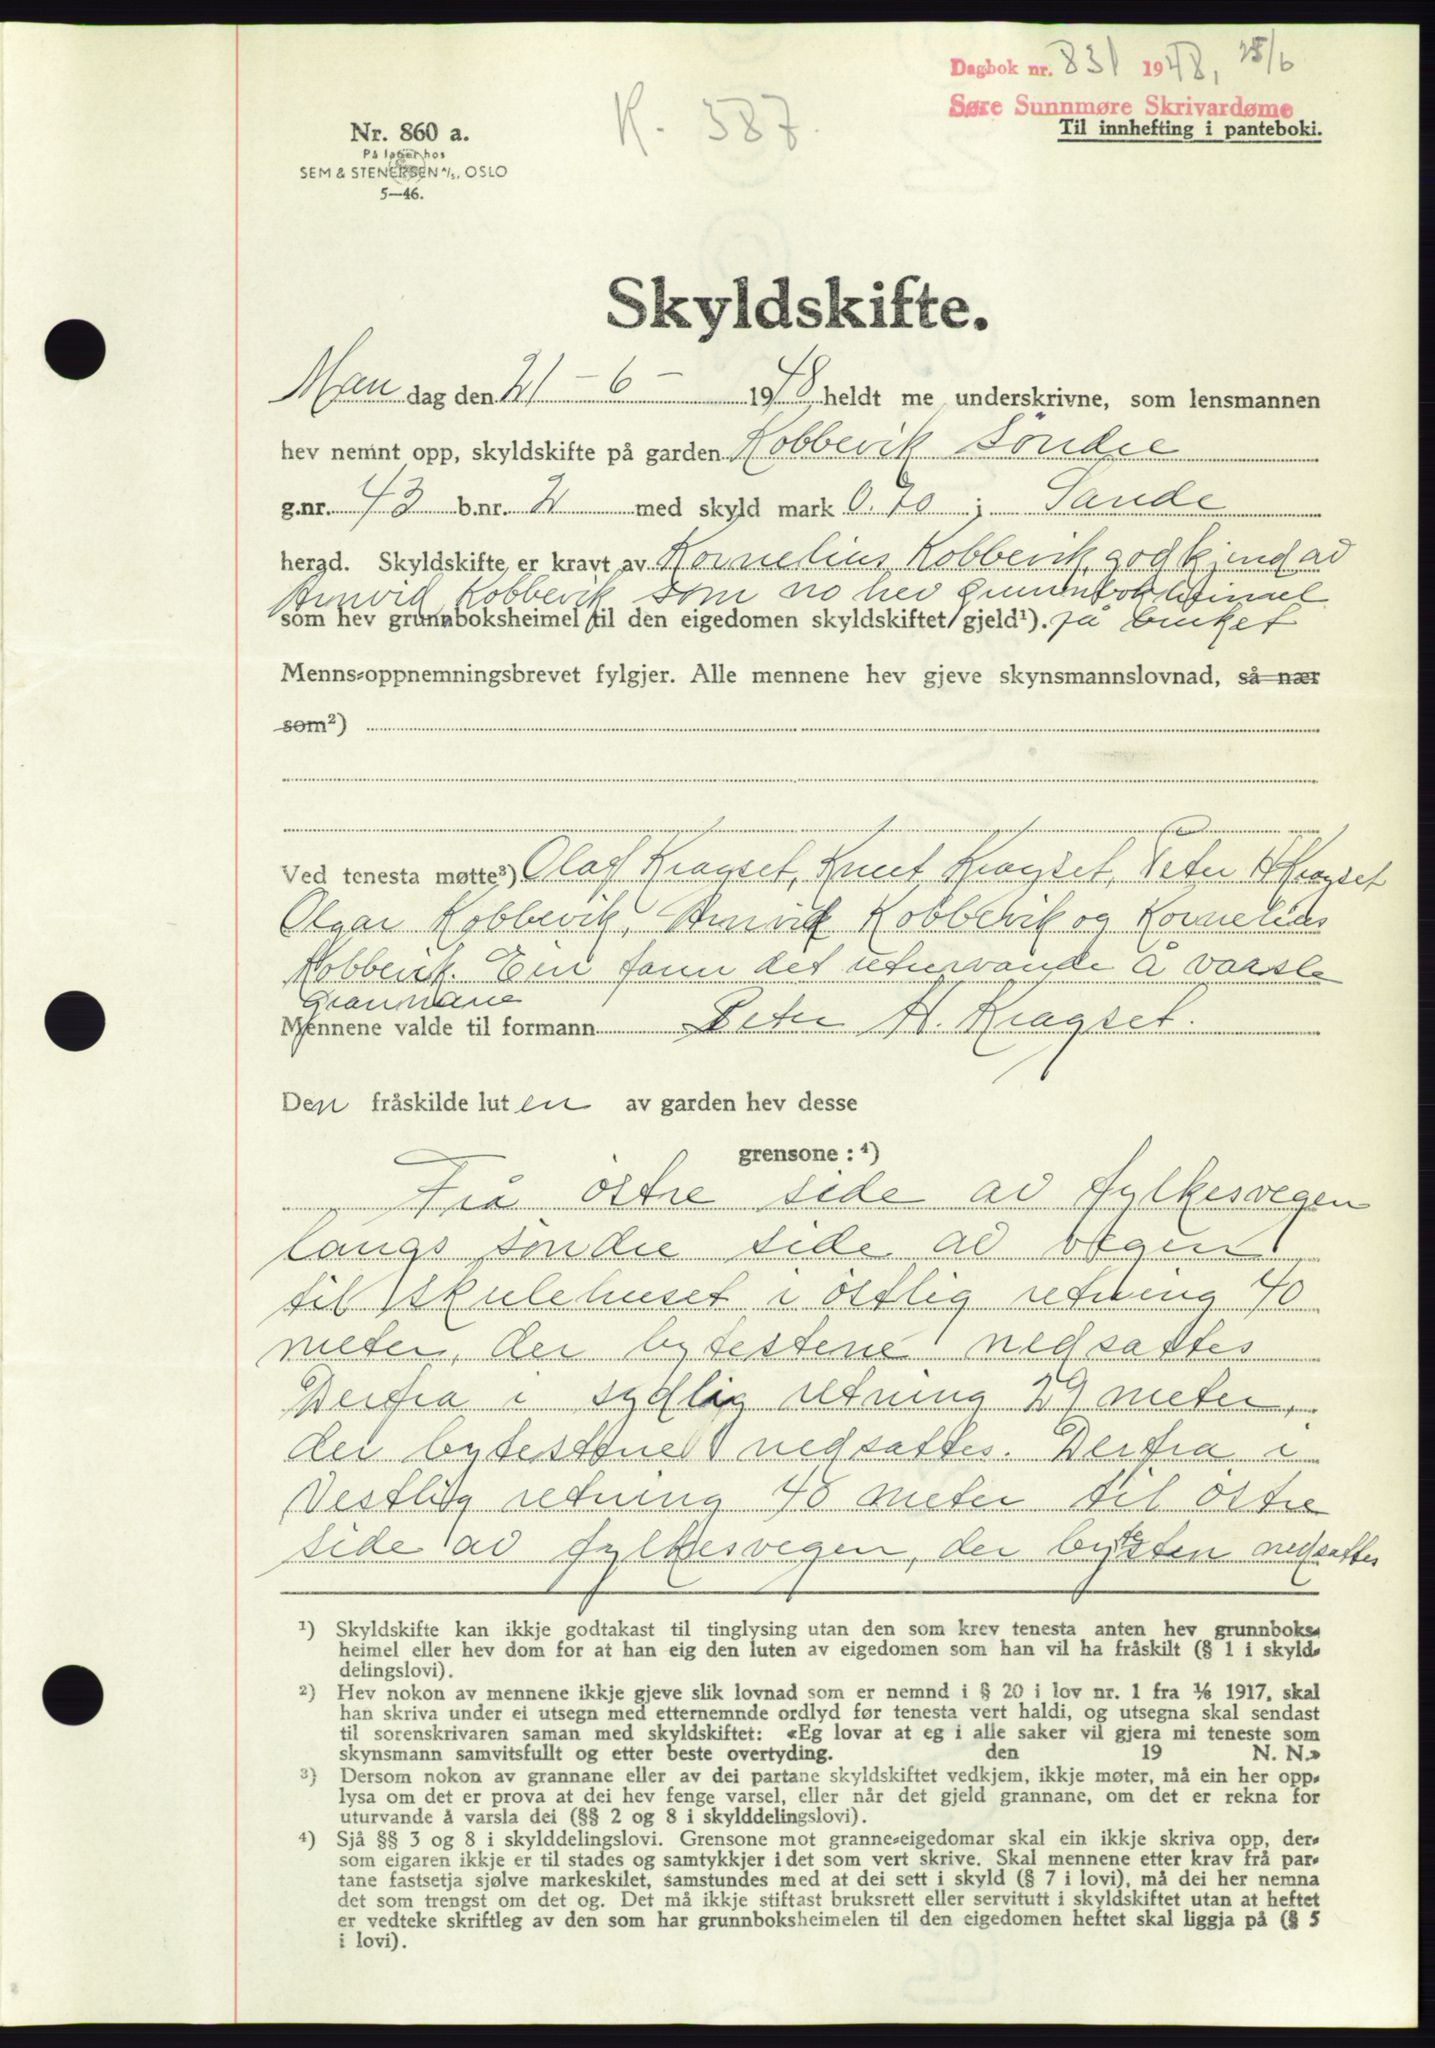 Dagbok nr. 831 1948, 25/6
Søre Sunnmøre Skrivardøme
Til innhefting i panteboki.
K. 387.
Nr. 860 a.
På lager hos
SEM & STENERSEN A/S, OSLO
5—46.
Skyldskifte.
Mandag den 21 - 6 - 1948 heldt me underskrivne, som lensmannen
hev nemnt opp, skyldskifte på garden Kobbevik Söndre
g.nr. 43 b.nr. 2 med skyld mark 0.70 i Sande
herad. Skyldskifte er kravt av Kornelius Kobbevik, godkjend av
Arnvid Kobbevik som no hev grunnbokheimel
som hev grunnboksheimel til den eigedomen skyldskiftet gjeld¹). på bruket
Menns-oppnemningsbrevet fylgjer. Alle mennene hev gjeve skynsmannslovnad, så nær
som²)
Ved tenesta møtte³) Olaf Kragset, Knut Kragset, Peter H Kragset
Olgar Kobbevik, Arnvid Kobbevik og Kornelius
Kobbevik. Ein fann det uturvande å varsla
grannane
Mennene valde til formann Peter H. Kragset.
Den fråskilde luten av garden hev desse
grensone : ⁴)
Frå östre side av fylkesvegen
langs söndre side av vegen
til skulehuset i östlig retning 40
meter, der bytestene nedsattes
Derfra i sydlig retning 29 meter,
der bytestene nedsattes. Derfra i
Vestlig retning 40 meter til östre
side av fylkesvegen, der bytesten nedsattes
¹) Skyldskifte kan ikkje godtakast til tinglysing utan den som krev tenesta anten hev grunnboks-
heimel eller hev dom for at han eig den luten av eigedomen som han vil ha fråskilt (§ 1 i skyld-
delingslovi).
²) Hev nokon av mennene ikkje gjeve slik lovnad som er nemnd i § 20 i lov nr. 1 fra 1/6 1917, skal
han skriva under ei utsegn med etternemnde ordlyd før tenesta vert haldi, og utsegna skal sendast
til sorenskrivaren saman med skyldskiftet: «Eg lovar at eg i alle saker vil gjera mi teneste som
skynsmann samvitsfullt og etter beste overtyding. den 19 N. N.»
³) Dersom nokon av grannane eller av dei partane skyldskiftet vedkjem, ikkje møter, må ein her opp-
lysa om det er prova at dei hev fenge varsel, eller når det gjeld grannane, om det er rekna for
uturvande å varsla dei (§§ 2 og 8 i skylddelingslovi).
⁴) Sjå §§ 3 og 8 i skylddelingslovi. Grensone mot granne-eigedomar skal ein ikkje skriva opp, der-
som eigaren ikkje er til stades og samtykkjer i det som vert skrive. Skal mennene etter krav frå par-
tane fastsetja sjølve markeskilet, samstundes med at dei sett i skyld (§ 7 i lovi), må dei her nemna
det som trengst om det og. Det må ikkje stiftast bruksrett eller servitutt i skyldskiftet utan at heftet
er vedteke skriftleg av den som har grunnboksheimelen til den eigedomen heftet skal liggja på (§ 5
i lovi).